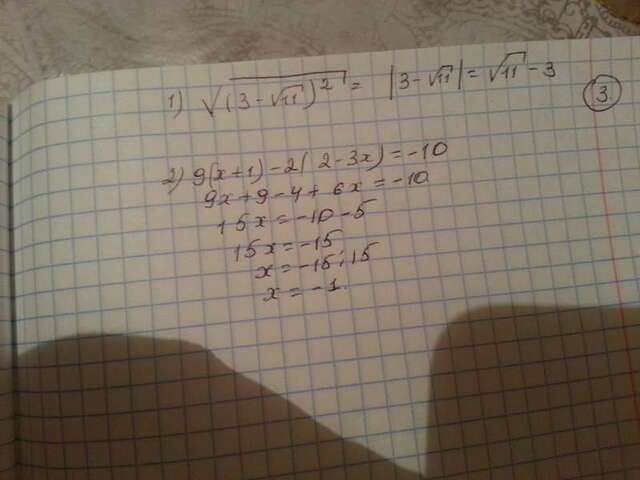 1) √(3-√11)² = |3-√11| = √11 - 3
3.
2) 9(x+1) - 2(2-3x) = -10
9x+9-4+6x = -10
15x = -10-5
15x = -15
x = -15:15
x = -1.